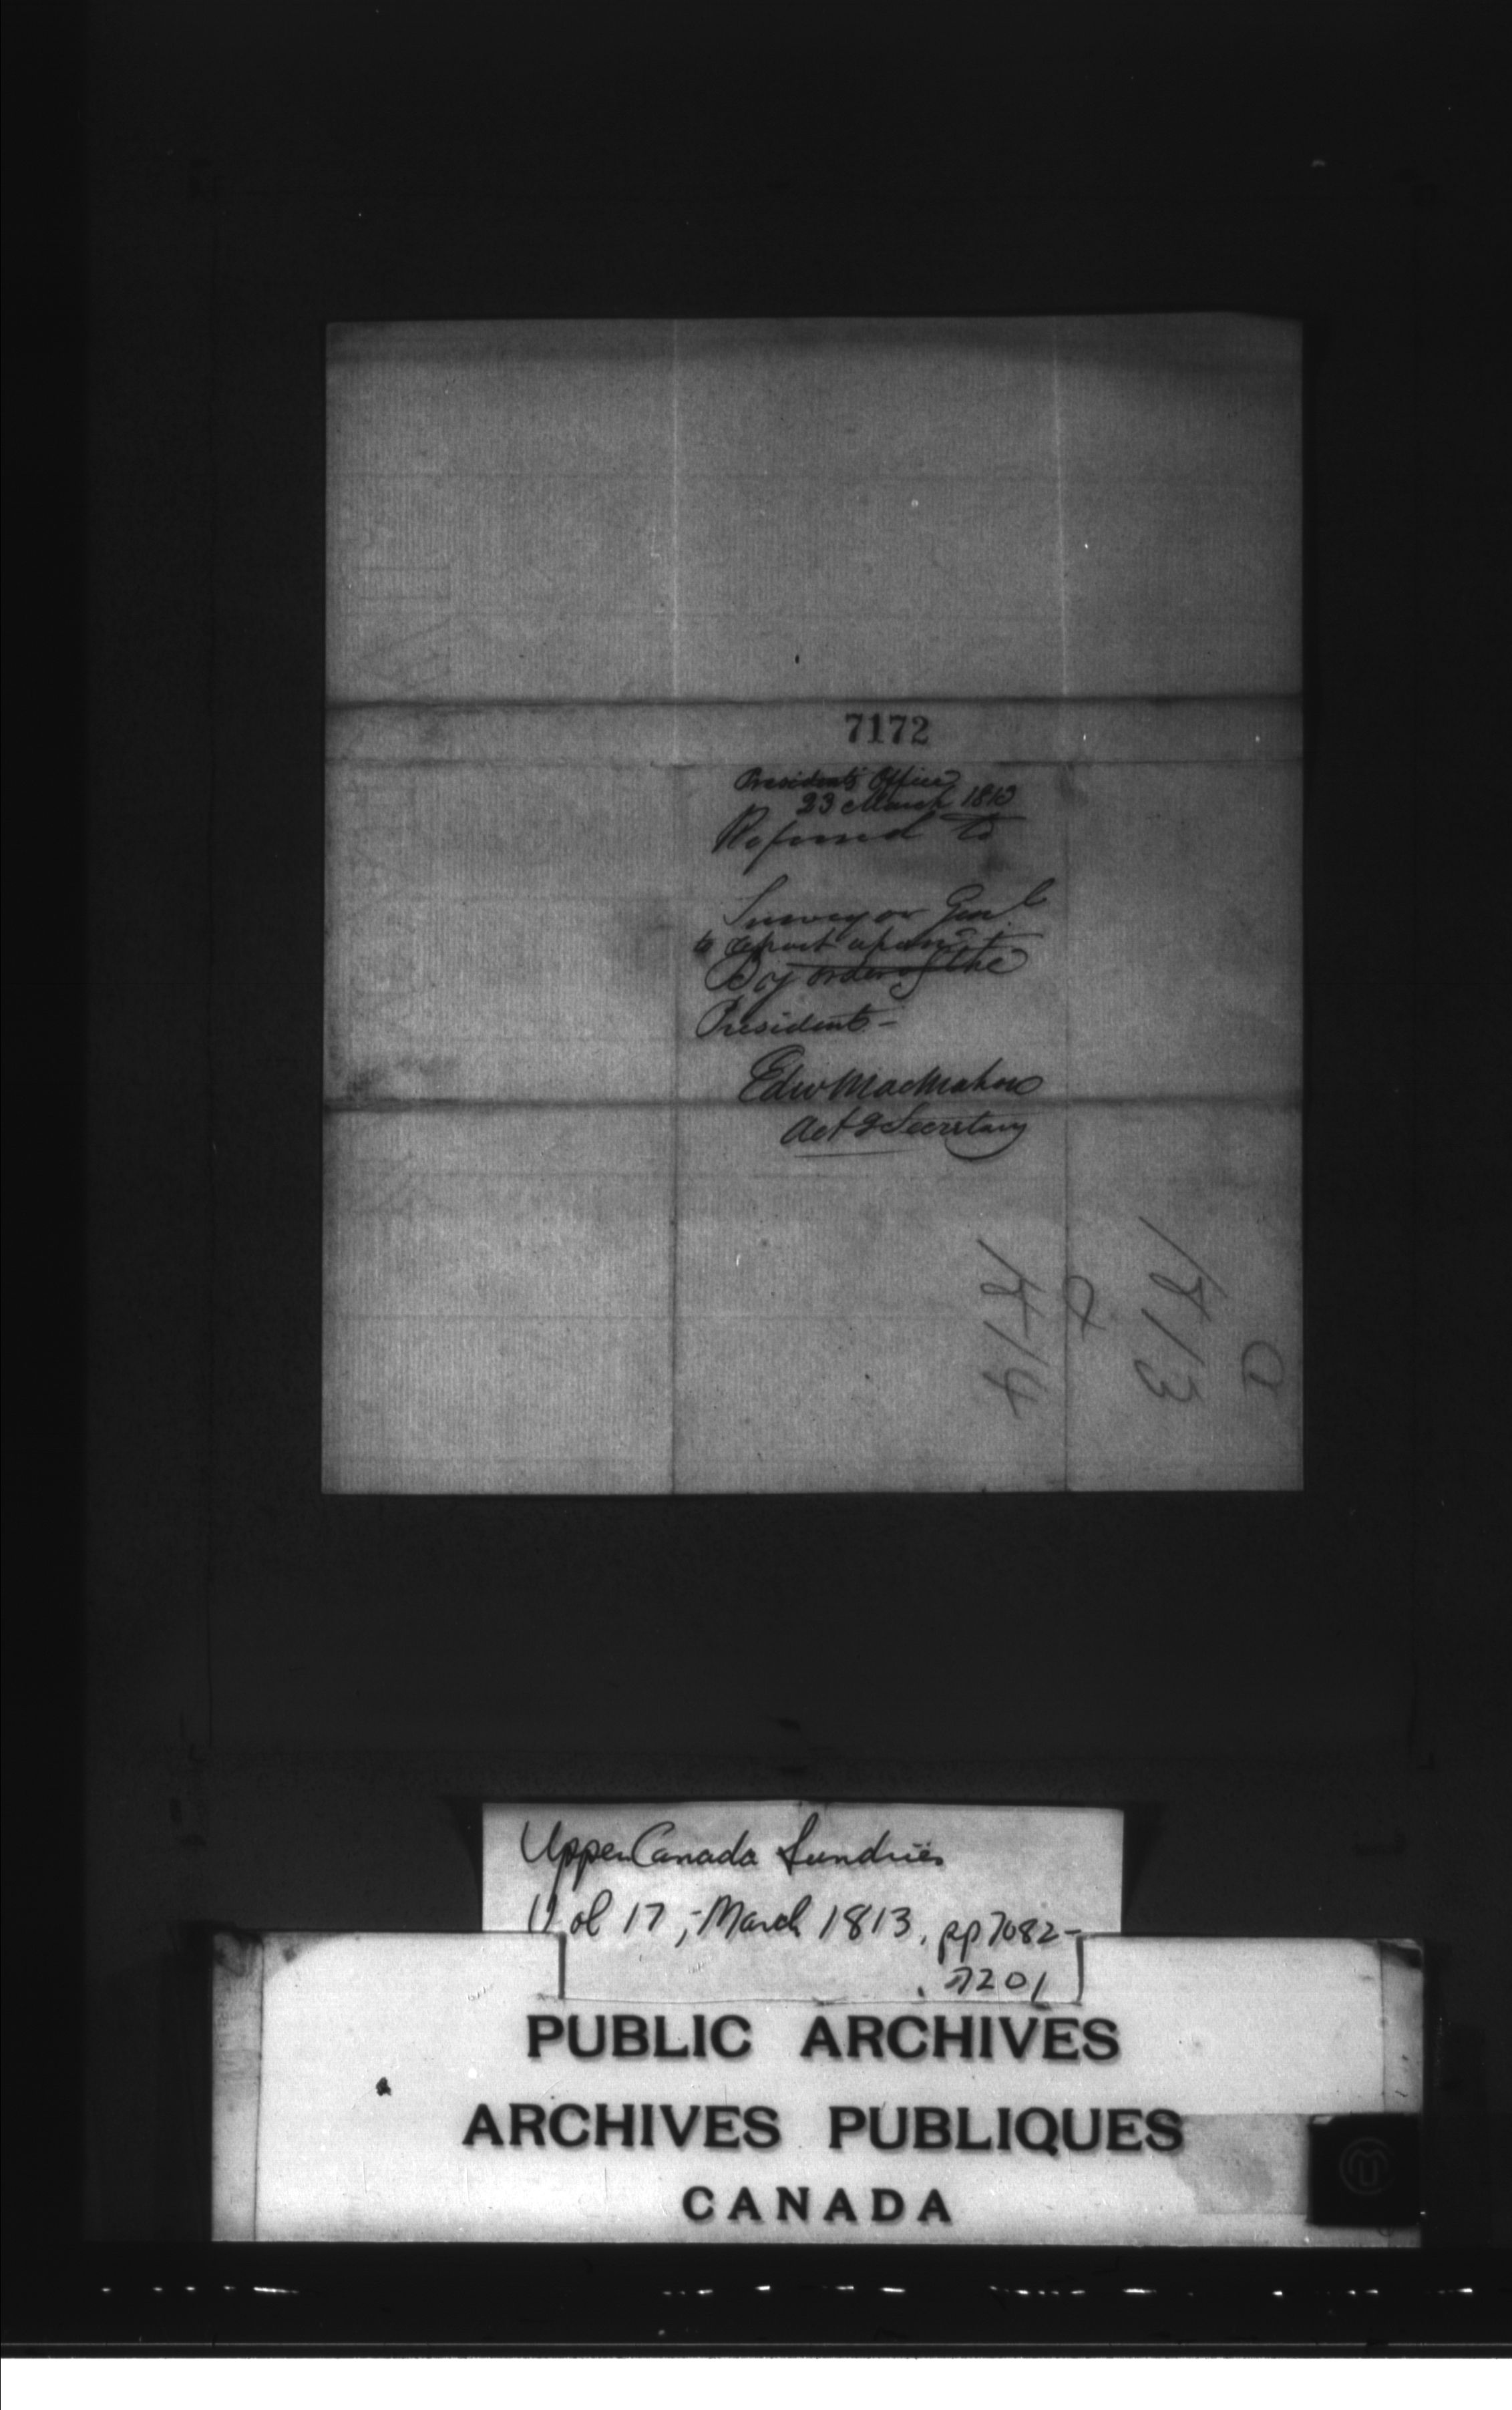 7172
Presidents Office
23 March 1813
Referred to
Surveyor Genl
to report upon
By order of the
President -
Edw MacMahon
Actg Secretary
1813
1814
Upper Canada Sundries
Vol 17, March 1813, pp 7082-
7201
PUBLIC ARCHIVES
ARCHIVES PUBLIQUES
CANADA